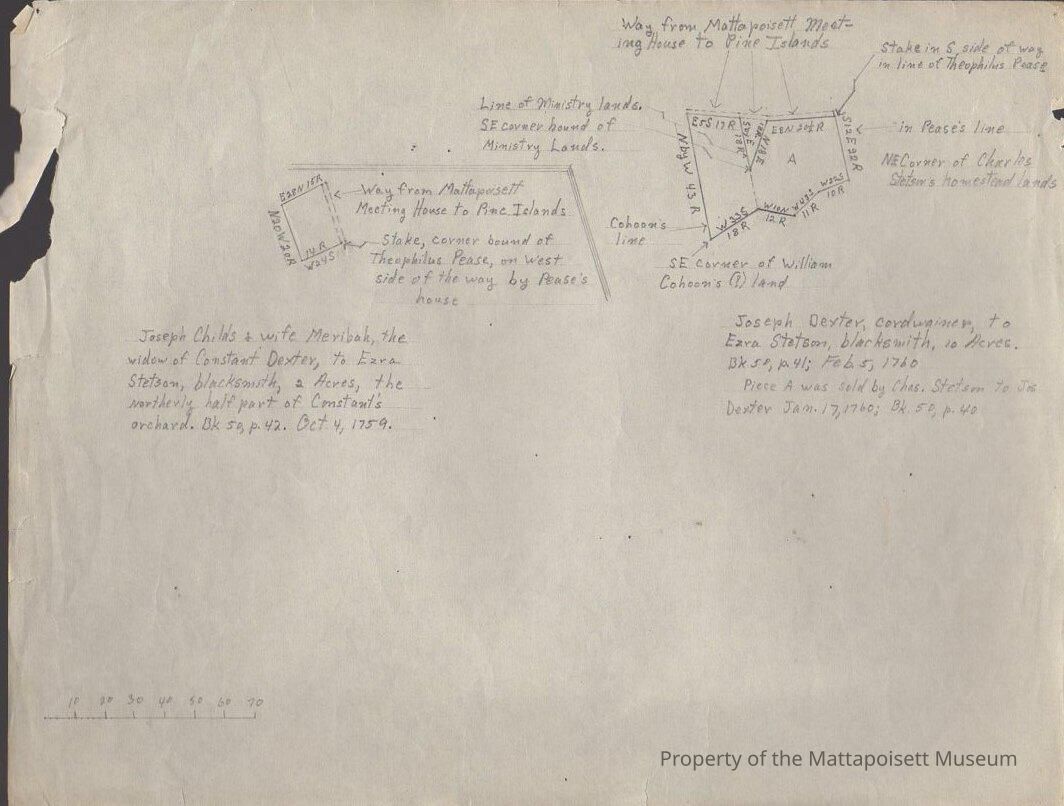 Way from Mattapoisett Meet-
ing House to Pine Islands
Stake in S, side of way
in line of Theophilus Pease
Line of Ministry lands.
SE corner bound of
Ministry Lands.
E5S 17 R
E8N 20½ R
S12E 22R
in Pease's line
NE Corner of Charles
Stetson's homestead lands
A
N by W 43 R
18 R
W22S
10 R
11 R
W10N
12 R
W33S
18 R
Cohoon's
line
SE corner of William
Cohoon's (?) land
E28N 15R
N20W 20R
14 R
W24S
Way from Mattapoisett
Meeting House to Pine Islands
Stake, corner bound of
Theophilus Pease, on West
side of the way by Pease's
house
Joseph Childs & wife Meribah, the
widow of Constant Dexter, to Ezra
Stetson, blacksmith, 2 Acres, the
northerly half part of Constant's
orchard. Bk 50, p. 42. Oct 4, 1759.
Joseph Dexter, cordwainer, to
Ezra Stetson, blacksmith, 10 Acres.
Bk 50, p. 41; Feb. 5, 1760
Piece A was sold by Chas. Stetson to Jos
Dexter Jan. 17, 1760; Bk. 50, p. 40
10 20 30 40 50 60 70
Property of the Mattapoisett Museum